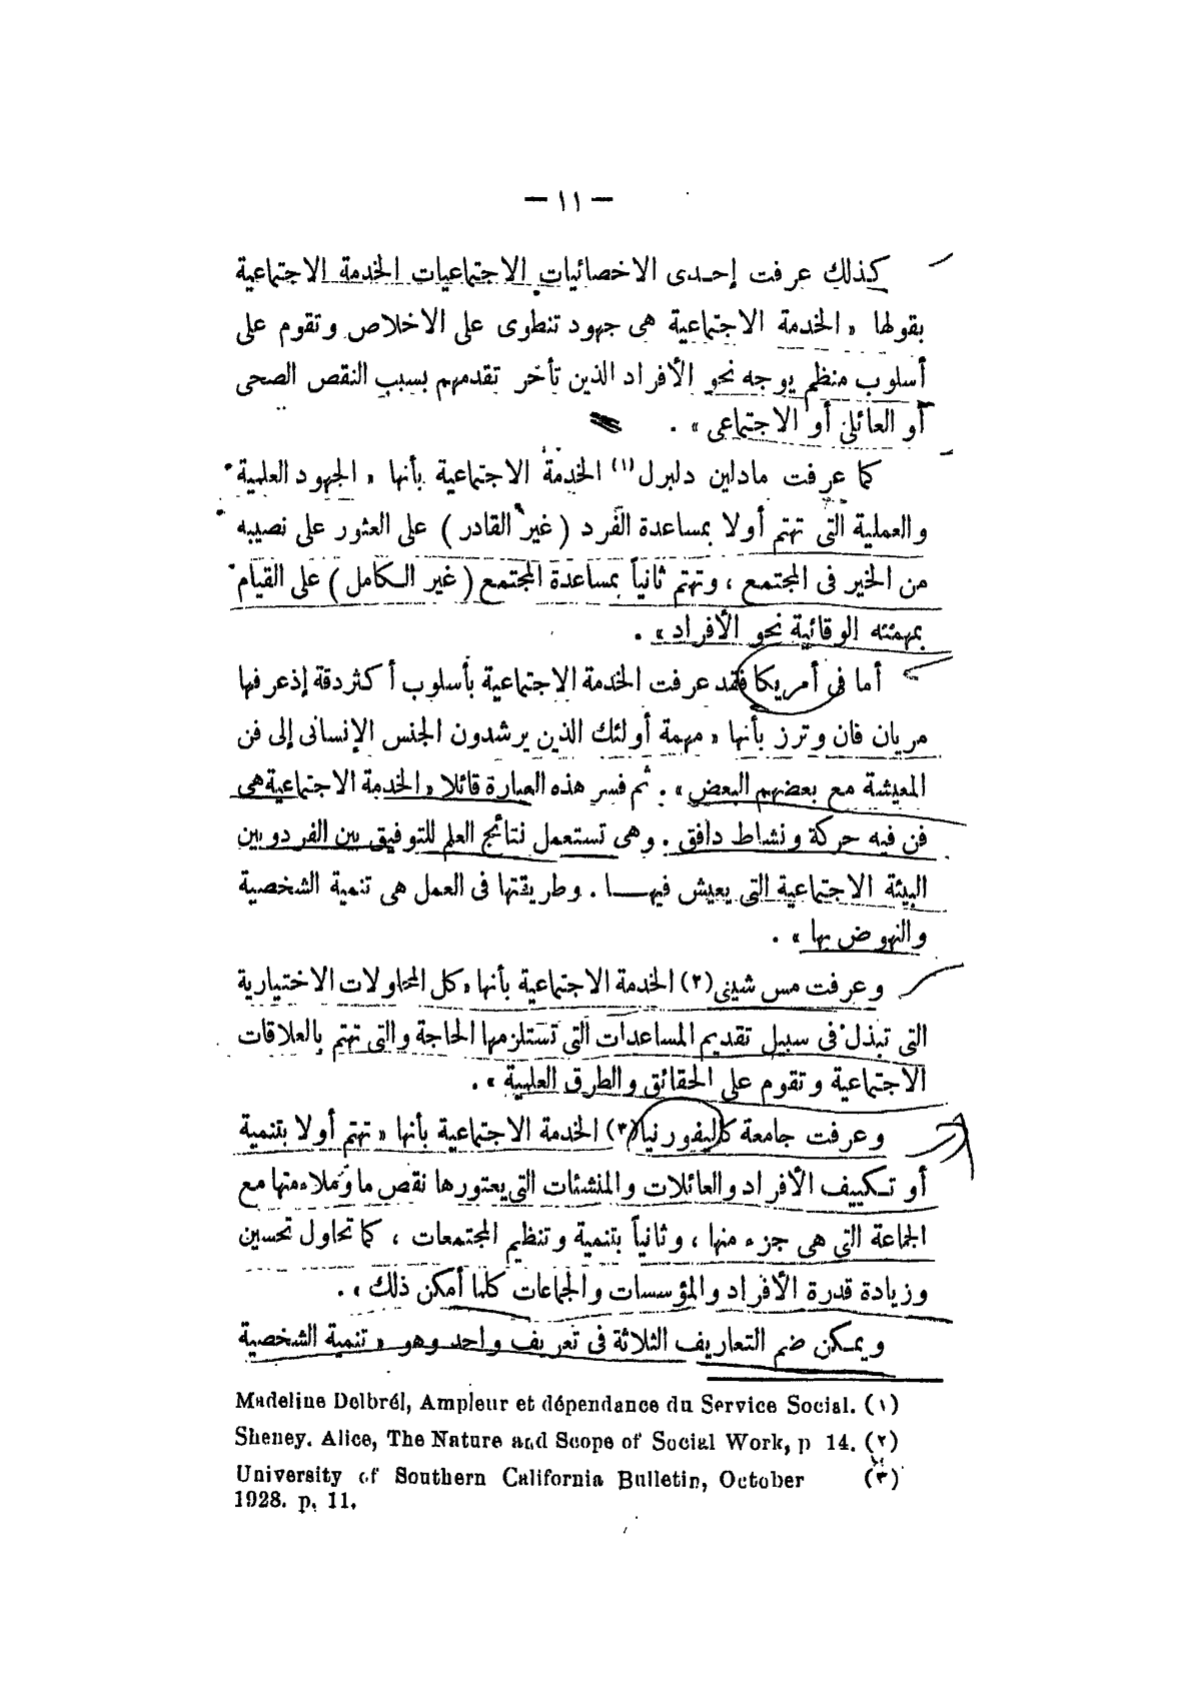 — ١١ —
كذلك عرفت إحدى الاخصائيات الاجتماعيات الخدمة الاجتماعية
بقولها « الخدمة الاجتماعية هى جهود تنطوى على الاخلاص وتقوم على
أسلوب منظم يوجه نحو الأفراد الذين تأخر تقدمهم بسبب النقص الصحى
أو العائلى أو الاجتماعى » .
كما عرفت مادلين دلبرل(١) الخدمة الاجتماعية بأنها « الجهود العلمية
والعملية التى تهتم أولا بمساعدة الفرد ( غير القادر ) على العثور على نصيبه
من الخير فى المجتمع ، وتهتم ثانياً بمساعدة المجتمع ( غير الكامل ) على القيام
بمهمته الوقائية نحو الأفراد » .
أما فى أمريكا فقد عرفت الخدمة الاجتماعية بأسلوب أكثر دقة إذ عرفها
مريان فان وترز بأنها « مهمة أولئك الذين يرشدون الجنس الإنسانى إلى فن
المعيشة مع بعضهم البعض » . ثم فسر هذه العبارة قائلا « الخدمة الاجتماعية هى
فن فيه حركة ونشاط دافق . وهى تستعمل نتائج العلم للتوفيق بين الفرد وبين
البيئة الاجتماعية التى يعيش فيهـا . وطريقتها فى العمل هى تنمية الشخصية
والنهوض بها » .
وعرفت مس شينى(٢) الخدمة الاجتماعية بأنها « كل المحاولات الاختيارية
التى تبذل فى سبيل تقديم المساعدات التى تستلزمها الحاجة والتى تهتم بالعلاقات
الاجتماعية وتقوم على الحقائق والطرق العلمية » .
وعرفت جامعة كاليفورنيا(٣) الخدمة الاجتماعية بأنها « تهتم أولا بتنمية
أو تكييف الأفراد والعائلات والمنشئات التى يعتورها نقص ما وملاءمتها مع
الجماعة التى هى جزء منها ، وثانياً بتنمية وتنظيم المجتمعات ، كما تحاول تحسين
وزيادة قدرة الأفراد والمؤسسات والجماعات كلما أمكن ذلك » .
ويمكن ضم التعاريف الثلاثة فى تعريف واحد وهو « تنمية الشخصية
Madeline Delbrél, Ampleur et dépendance du Service Social. (١)
Sheney. Alice, The Nature and Scope of Social Work, p 14. (٢)
University of Southern California Bulletin, October (٣)
1928. p. 11.